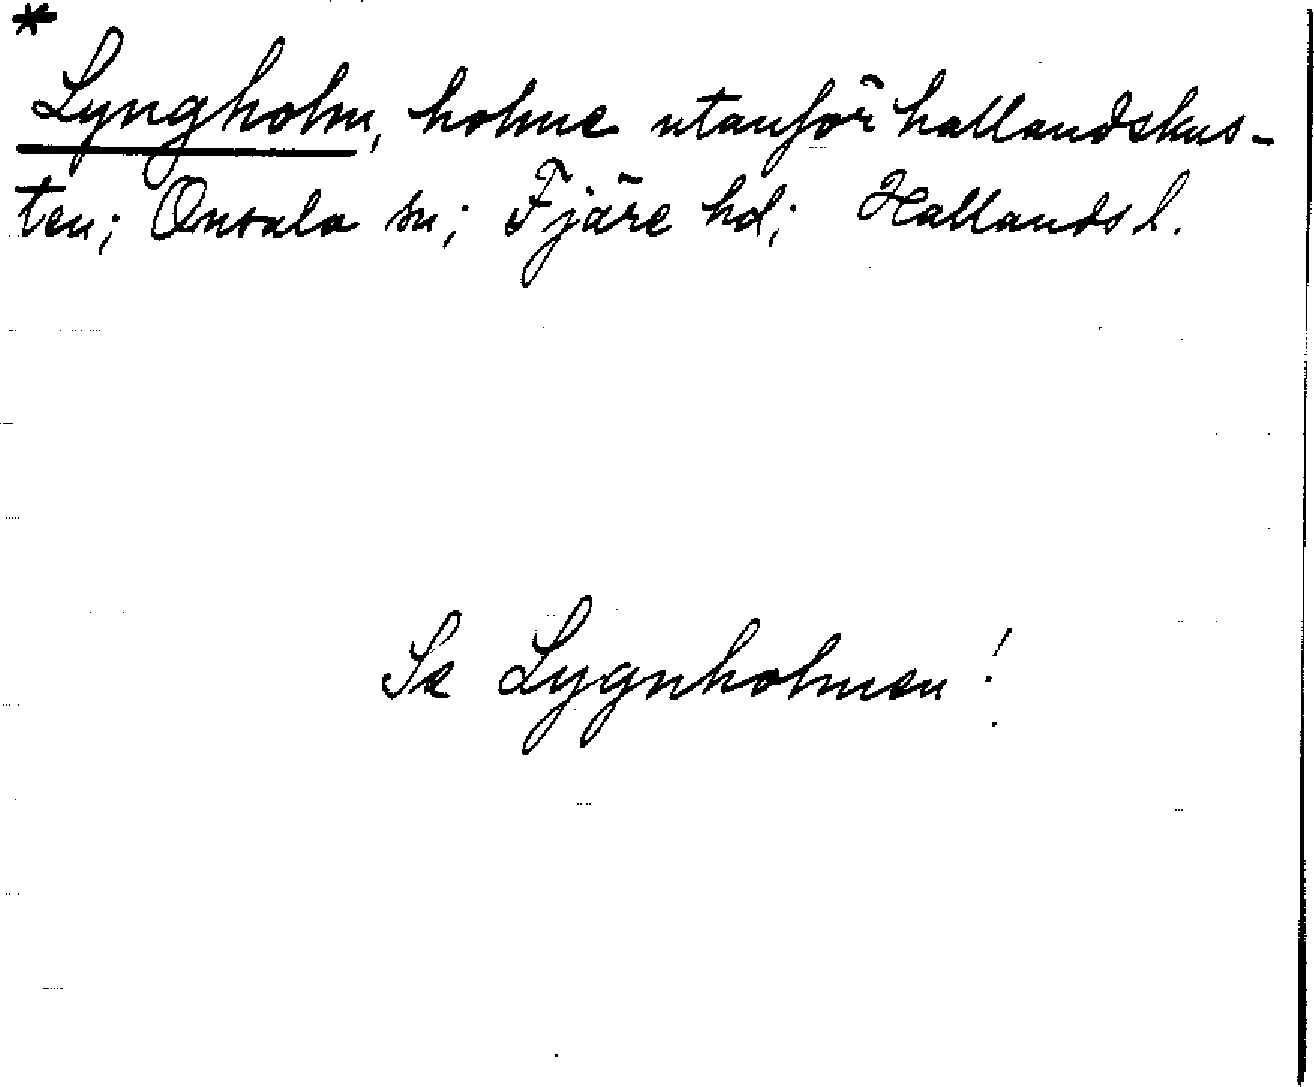 *
Lyngholm, holme utanför hallandskus-
ten; Onsala sn; Fjäre hd; Hallands l.
Se Lygnholmen!